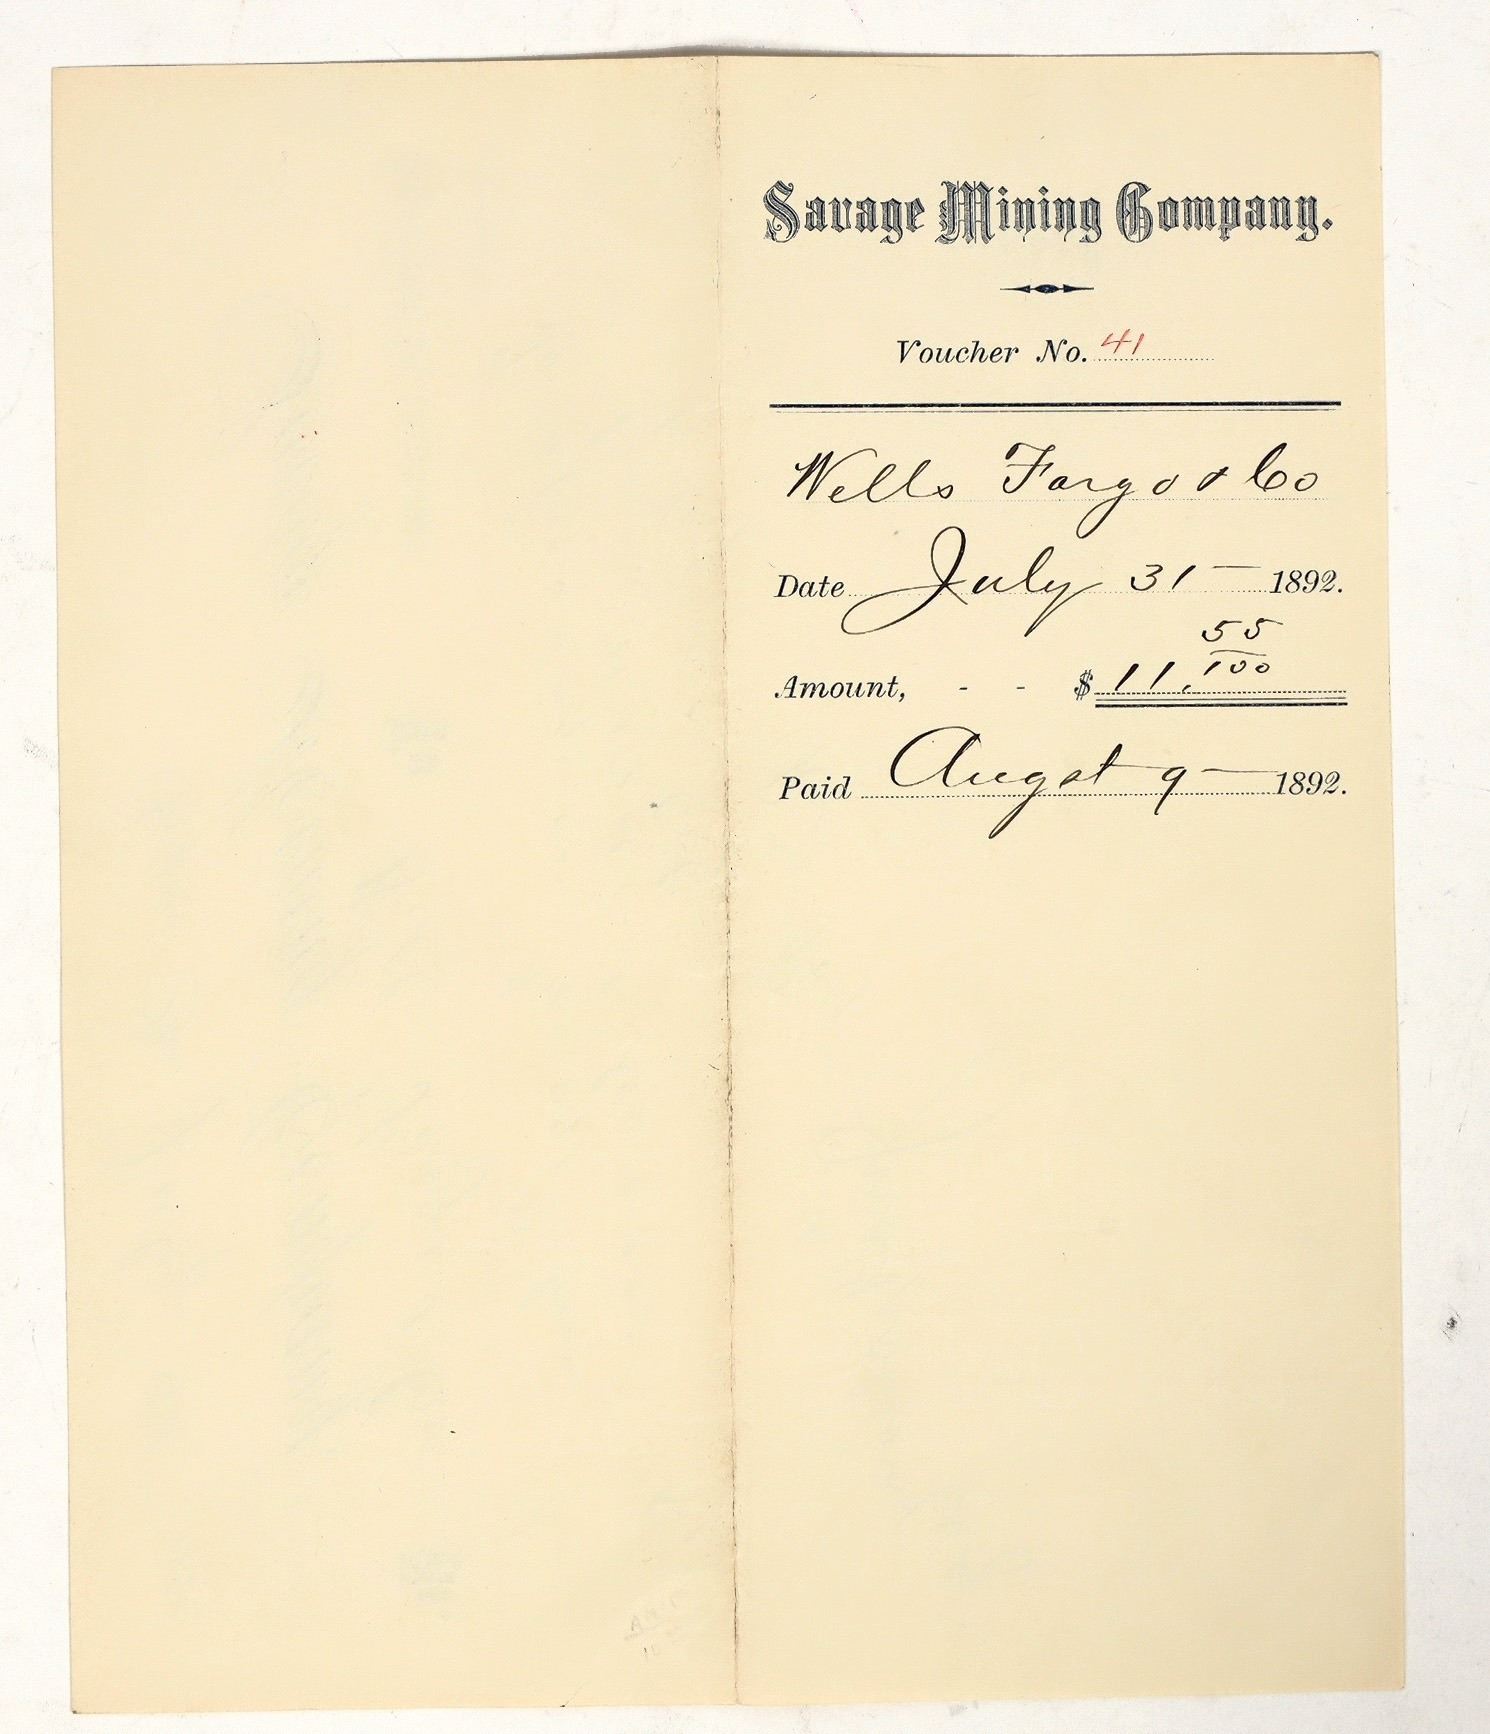 Savage Mining Company.
Voucher No. 41
Wells Fargo & Co
Date July 31 — 1892.
Amount, - - $ 11. 55/100
Paid Augst 9 — 1892.